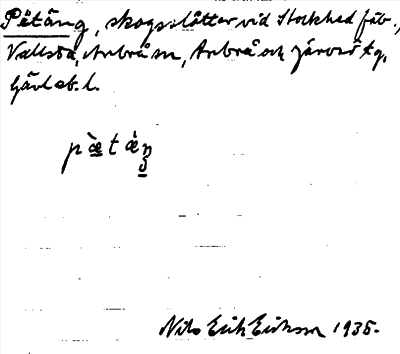 Pätäng, skogsslåtter vid Stockhed fäb.,
Vallsta, Arbrå sn, Arbrå och Järvsö tg,
Gävleb. l.
pæ̀tǽŋ
Nils Erik Eriksson 1935.